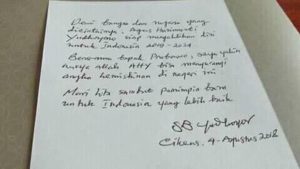 Demi bangsa dan negara yang
dicintainya, Agus Harimurti
Yudhoyono siap mengabdikan diri
untuk Indonesia 2019 - 2024
Bersama bapak Prabowo, saya yakin
AHY bisa mengurangi
angka kemiskinan di negeri ini
Mari kita sambut pemimpin baru
untuk Indonesia yang lebih baik
SB Yudhoyono
Cikeas, 4 - Agustus 2018